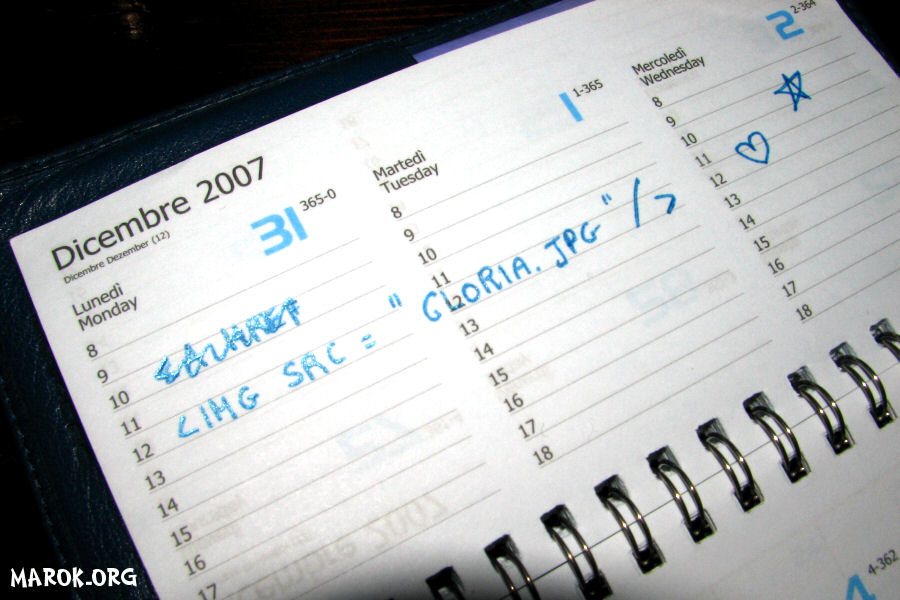 Dicembre 2007
Dicembre Dezember (12)
31 365-0
Lunedì
Monday
8
9
10
11
12
13
14
15
16
17
<IMG SRC = "GLORIA.JPG" />
1 1-365
Martedì
Tuesday
8
9
10
11
12
13
14
15
16
17
18
2 2-364
Mercoledì
Wednesday
8
9
10
11
12
13
14
15
16
17
18
4 4-362
MAROK.ORG